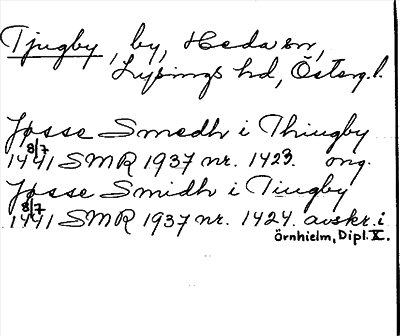 Tjugby, by, Heda sn,
Lysings hd, Österg.l.
Josse Smedh i Thiugby
8/7 1441 SMR 1937 nr. 1423. orig.
Josse Smidh i Tiugby
8/7 1441 SMR 1937 nr. 1424. avskr. i
Örnhielm, Dipl. X.